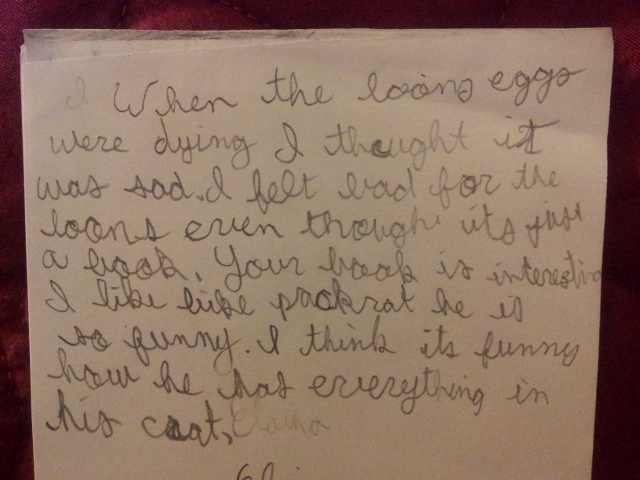 I When the loons eggs
were dying I thought it
was sad. I felt bad for the
loons even though its just
a book. Your book is interesting
I like like packrat he is
so funny. I think its funny
how he has everything in
his coat. Elaina